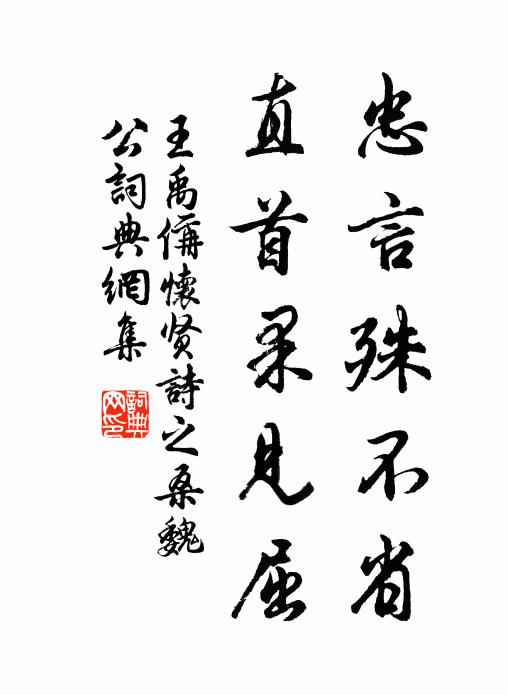 忠言殊不省
直首果見屈
王禹偁懷贤詩之桑魏
公詞典網集
詞典
网印